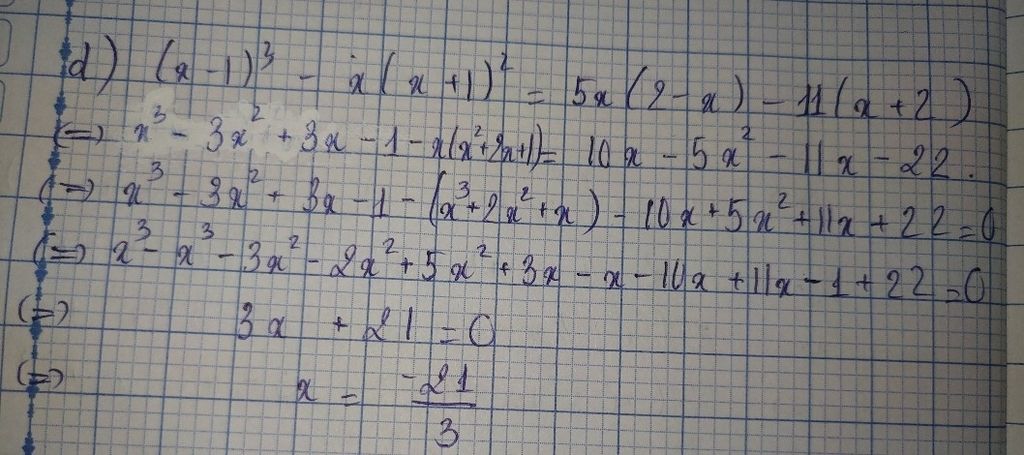 d) (x-1)³ - x(x+1)² = 5x(2-x) - 11(x+2)
(=) x³ - 3x² + 3x - 1 - x(x²+2x+1) = 10x - 5x² - 11x - 22.
(=) x³ - 3x² + 3x - 1 - (x³+2x²+x) - 10x + 5x² + 11x + 22 = 0
(=) x³ - x³ - 3x² - 2x² + 5x² + 3x - x - 10x + 11x - 1 + 22 = 0
(=) 3x + 21 = 0
(=) x = -21/3